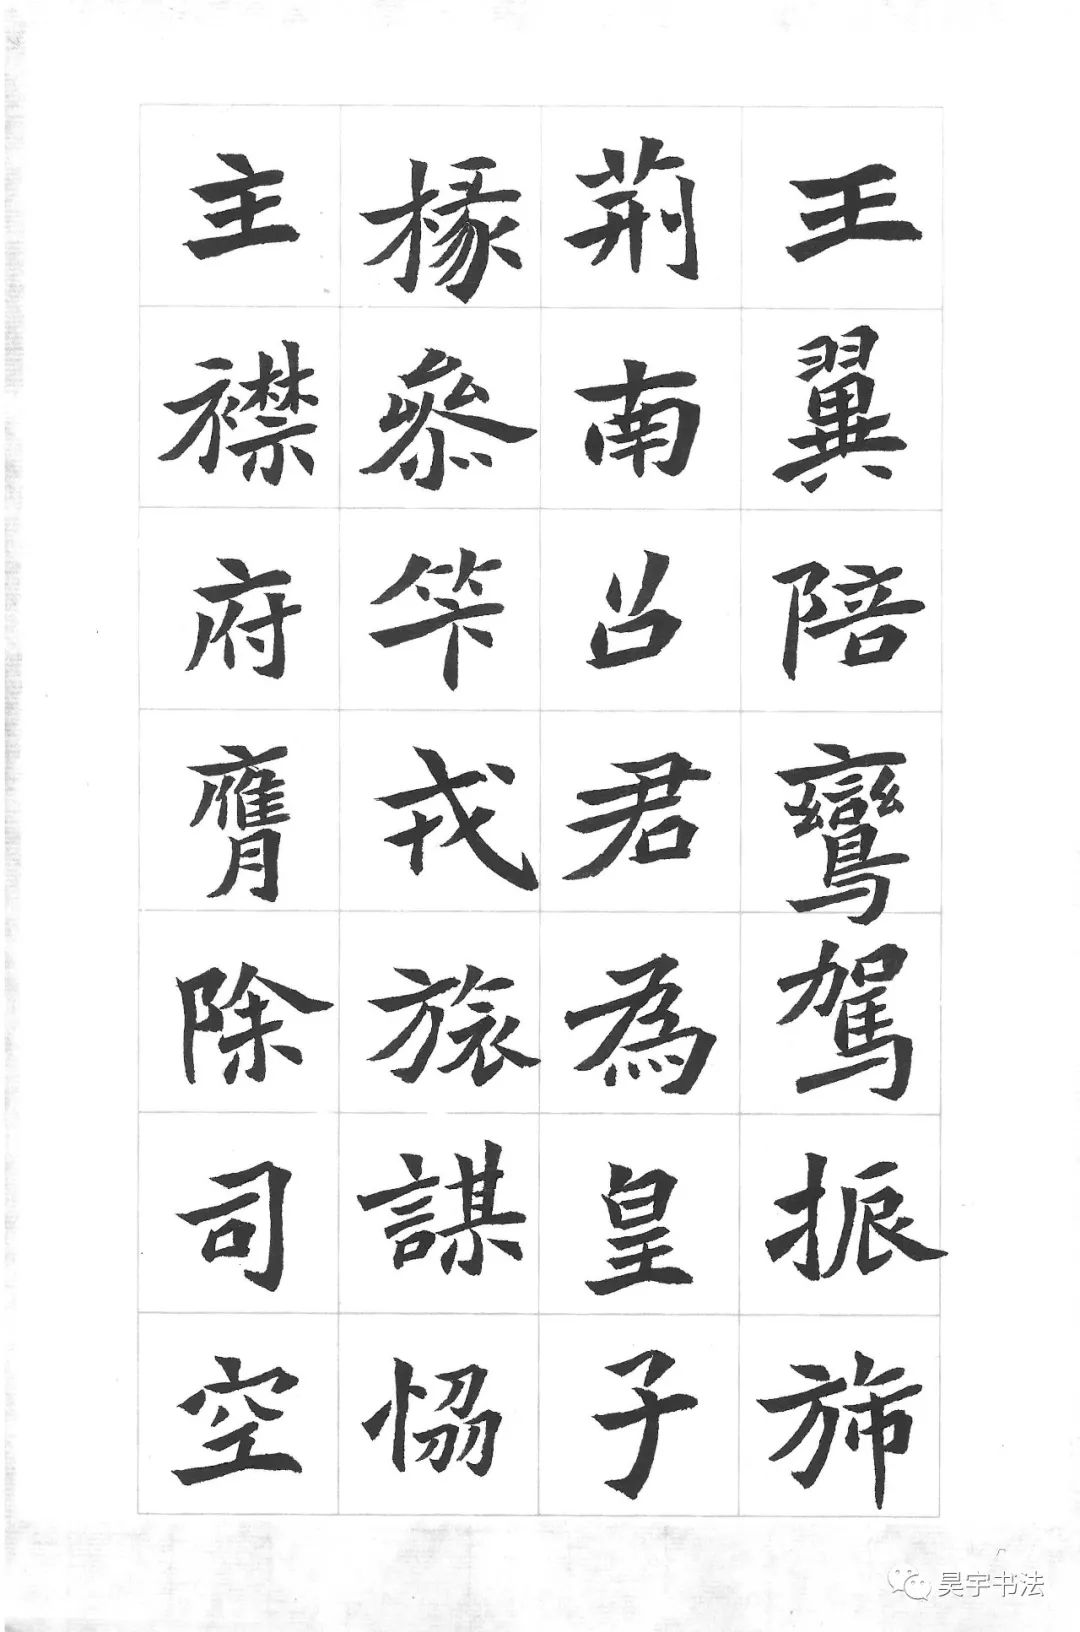 王翼陪鸞駕振斾
荊南召君為皇子
掾參笇戎旅謀惂
主襟府膺除司空
昊宇书法